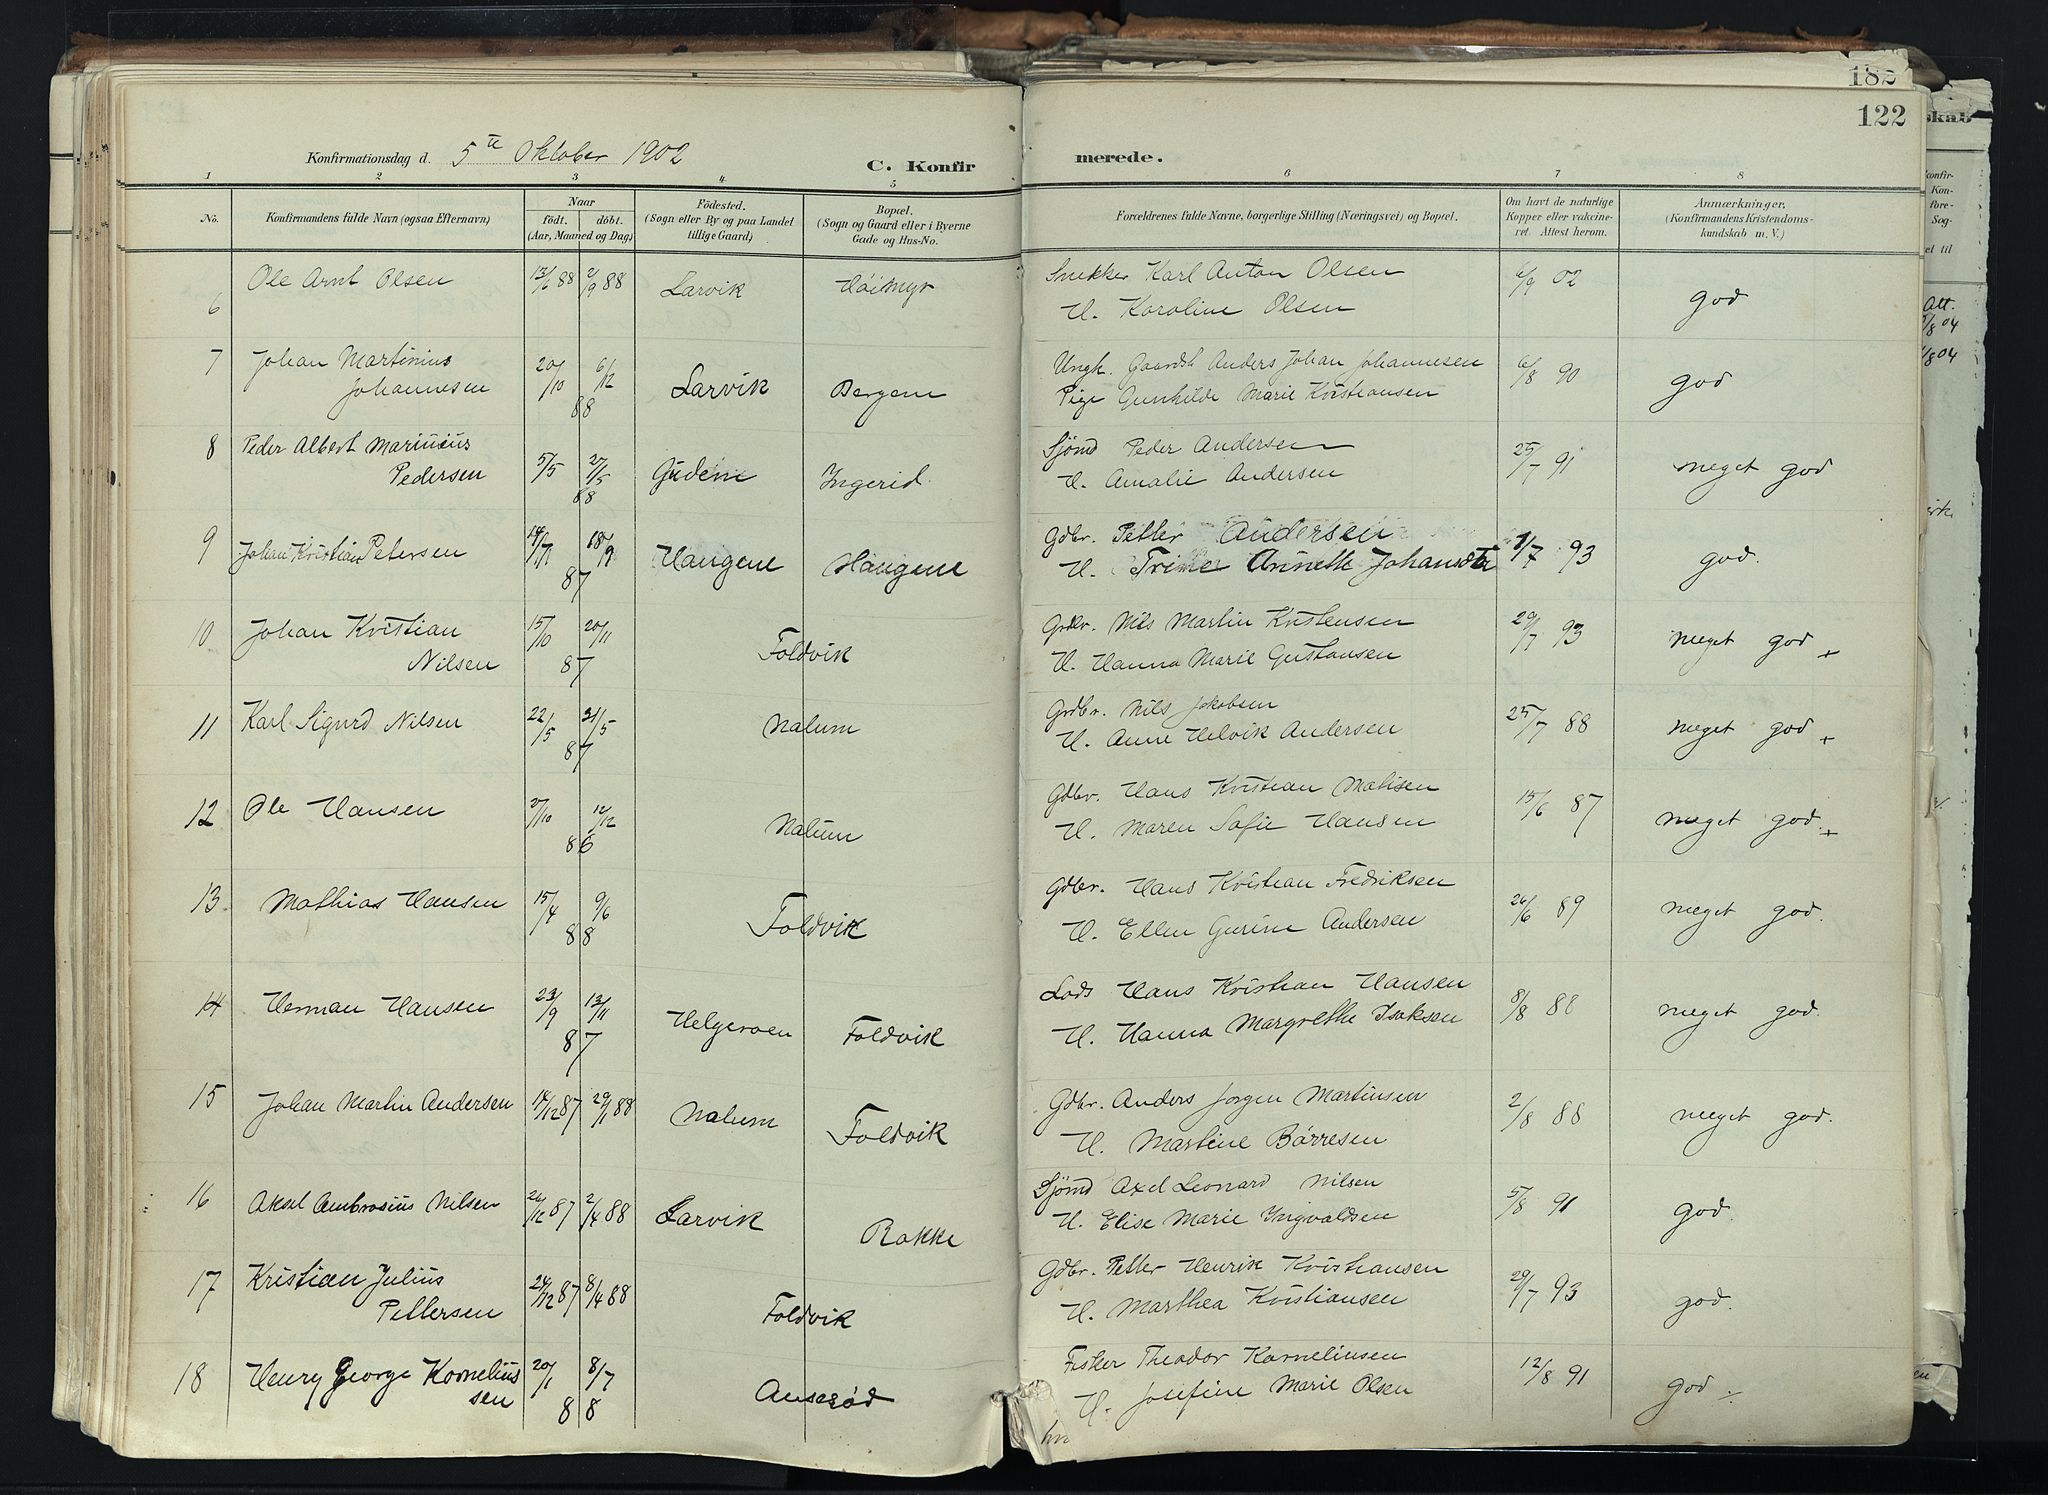 182
122
Konfirmationsdag d. 5te Oktober 1902 C. Konfir merede.
1 2 3 4 5 6 7 8
No. Konfirmandens fulde Navn (ogsaa Efternavn) Naar födt. döbt. (Aar, Maaned og Dag) Födested. (Sogn eller By og paa Landet tillige Gaard) Bopæl. (Sogn og Gaard eller i Byerne Gade og Hus-No. Forældrenes fulde Navne, borgerlige Stilling (Næringsvei) og Bopæl. Om havt de naturlige Kopper eller vakcineret. Attest herom. Anmærkninger. (Konfirmandens Kristendomskundskab m. V.)
6 Ole Arnt Olsen 13/6 88 2/9 88 Larvik Höimyr Snekker Karl Anton Olsen 6/9 02 god
H. Karoline Olsen
7 Johan Martinius 20/10 6/12 Larvik Bergene Ungk. Gaardst Anders Johan Johannesen 6/8 90 god
Johannesen 88 Pige Gunhilde Marie Kristiansen
8 Peder Albert Marinius 5/5 27/5 Gudem Ingerid Sjömd Peder Andersen 25/7 91 meget god
Pedersen 88 H. Amalie Andersen
9 Johan Kristian Petersen 14/7 18/9 Haugene Haugene Gdbr. Petter Andersen 1/7 93 god.
87 H. Trine Annette Johansdtr
10 Johan Kristian 15/10 20/11 Foldvik Grdbr. Nils Martin Kristensen 29/7 93 meget god +
Nilsen 87 H. Hanna Marie Gustavsen
11 Karl Sigurd Nilsen 22/5 31/5 Nalum Grdbr. Nils Jakobsen 25/7 88 meget god +
87 H. Anne Helvik Andersen
12 Ole Hansen 27/10 12/12 Nalum Gdbr. Hans Kristian Matisen 15/6 87 meget god. +
86 H. Maren Sofie Hansen
13 Mathias Hansen 15/4 9/6 Foldvik Gdbr. Hans Kristian Fredriksen 26/6 89 meget god.
88 H. Ellen Gurine Andersen
14 Herman Hansen 23/9 13/11 Helgeroen Foldvik Lods Hans Kristian Hansen 8/8 88 meget god.
87 H. Hanna Margrethe Isaksen
15 Johan Martin Andersen 14/12 87 29/1 88 Nalum Foldvik Gdbr. Anders Jorgen Martinsen 2/8 88 meget god.
H. Martine Börresen
16 Aksel Ambrosius Nilsen 26/12 87 2/4 88 Larvik Rakke Sjömd Axel Leonard Nilsen 5/8 91 god.
H. Elise Marie Yngvaldsen
17 Kristian Julius 24/12 87 8/4 88 Foldvik Gdbr. Petter Henrik Kristiansen 29/7 93 god.
Pettersen H. Marthea Kristiansen
18 Henry George Kornelius 20/1 8/7 Auseröd Fisker Theodor Korneliusen 12/8 91 god
sen 88 H. Josefine Marie Olsen
skab
konfir-
Kon-
före-
Sog-
et til
Att.
/8 04
/8 04